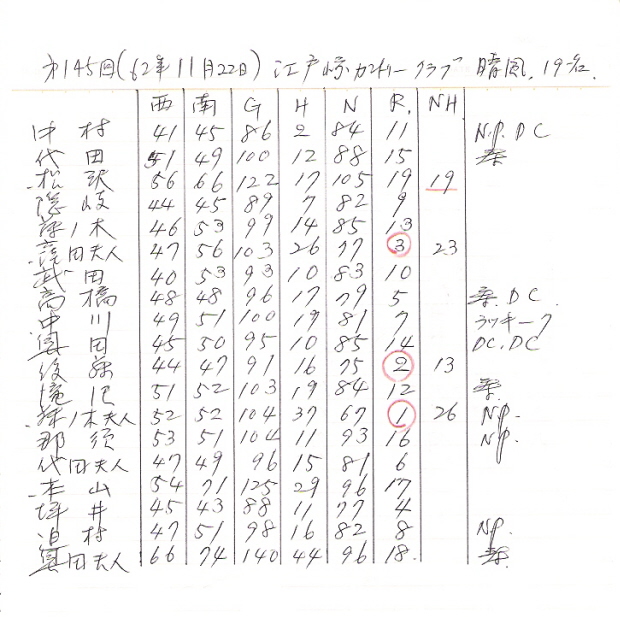 第145回(62年11月22日) 江戸崎カントリークラブ 晴風. 19名.
西 南 G H N R. NH
中村 41 45 86 2 84 11 N.P. DC
代田 51 49 100 12 88 15
松沢 56 66 122 17 105 19 19
隠岐 44 45 89 7 82 9
榊ノ木 46 53 99 14 85 13
窪田夫人 47 56 103 26 77 3 23
武田 40 53 93 10 83 10
高橋 48 48 96 17 79 5 D C
中川 49 51 100 19 81 7 ラッキー7
窪田 45 50 95 10 85 14 DC, DC
後藤 44 47 91 16 75 2 13
境児 51 52 103 19 84 12
榊ノ木夫人 52 52 104 37 67 1 26 N.P.
那須 53 51 104 11 93 16 N.P.
代田夫人 47 49 96 15 81 6
本山 54 71 125 29 96 17
坪井 45 43 88 11 77 4
迫村 47 51 98 16 82 8 N.P.
田夫人 66 74 140 44 96 18